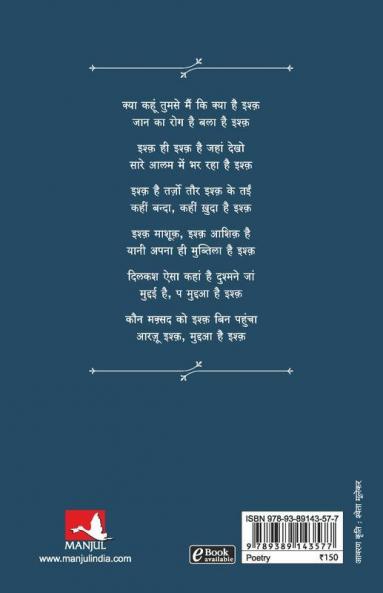 क्या कहूं तुमसे मैं कि क्या है इश्क़
जान का रोग है बला है इश्क़
इश्क़ ही इश्क़ है जहां देखो
सारे आलम में भर रहा है इश्क़
इश्क़ है तर्ज़ो तौर इश्क़ के तईं
कहीं बन्दा, कहीं ख़ुदा है इश्क़
इश्क़ माशूक़, इश्क़ आशिक़ है
यानी अपना ही मुब्तिला है इश्क़
दिलकश ऐसा कहां है दुश्मने जां
मुद्दई है, प मुद्दआ है इश्क़
कौन मक़्सद को इश्क़ बिन पहुंचा
आरज़ू इश्क़, मुद्दआ है इश्क़
MANJUL
www.manjulindia.com
eBook available
ISBN 978-93-89143-57-7
9 789389 143577
Poetry ₹150
आवरण कृति : श्वेता मूलेकर